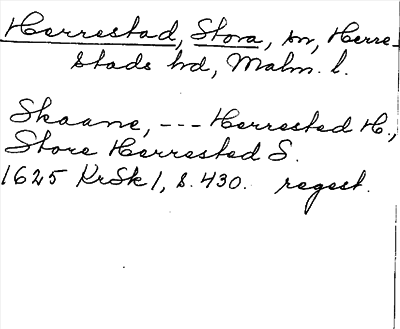 Herrestad, Stora, sn, Herre-
stads hd, Malm. l.
Skaane, --- Herrested H.,
Store Herrested S.
1625 KrSk 1, s. 430. regest.